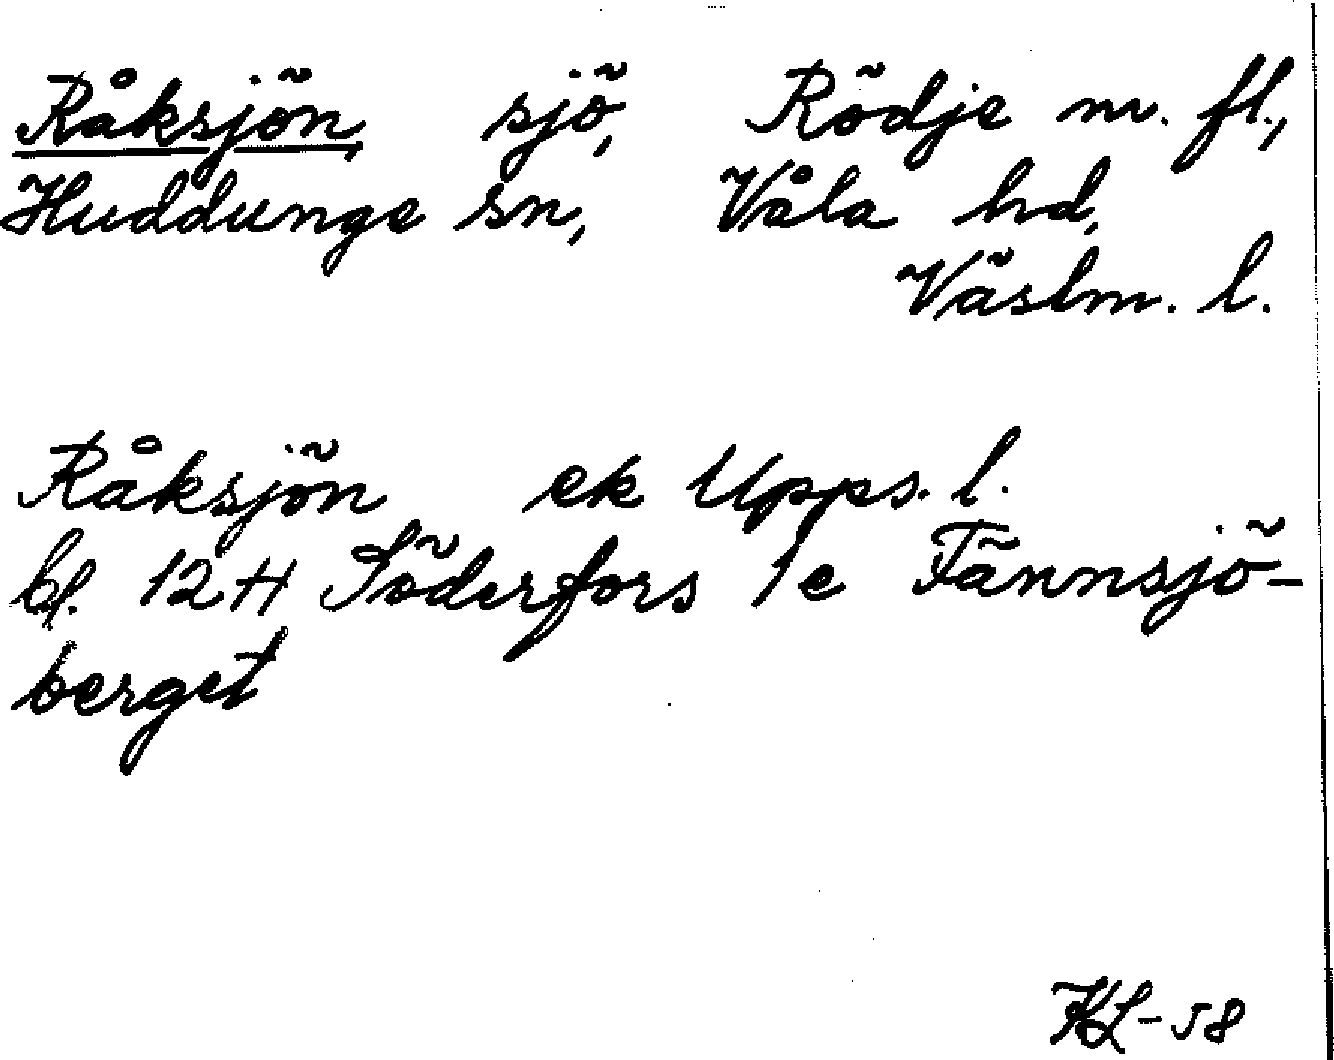 Råksjön, sjö, Rödje m. fl.,
Huddunge sn, Våla hd,
Västm. l.
Råksjön ek Upps. l.
bl. 12 H Söderfors 1 e Tännsjö-
berget
KL-58